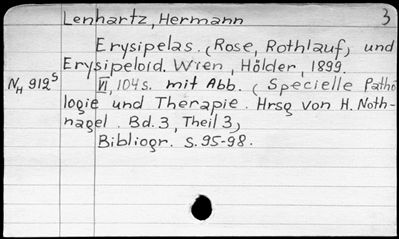 Lenhartz, Hermann 3
Erysipelas. (Rose, Rothlauf) und
Erysipeloid. Wien, Hölder, 1899.
NH 912⁵ VI, 104 s. mit Abb. (Specielle Patho
logie und Therapie. Hrsg von H. Noth-
nagel. Bd. 3, Theil 3)
Bibliogr. S. 95-98.